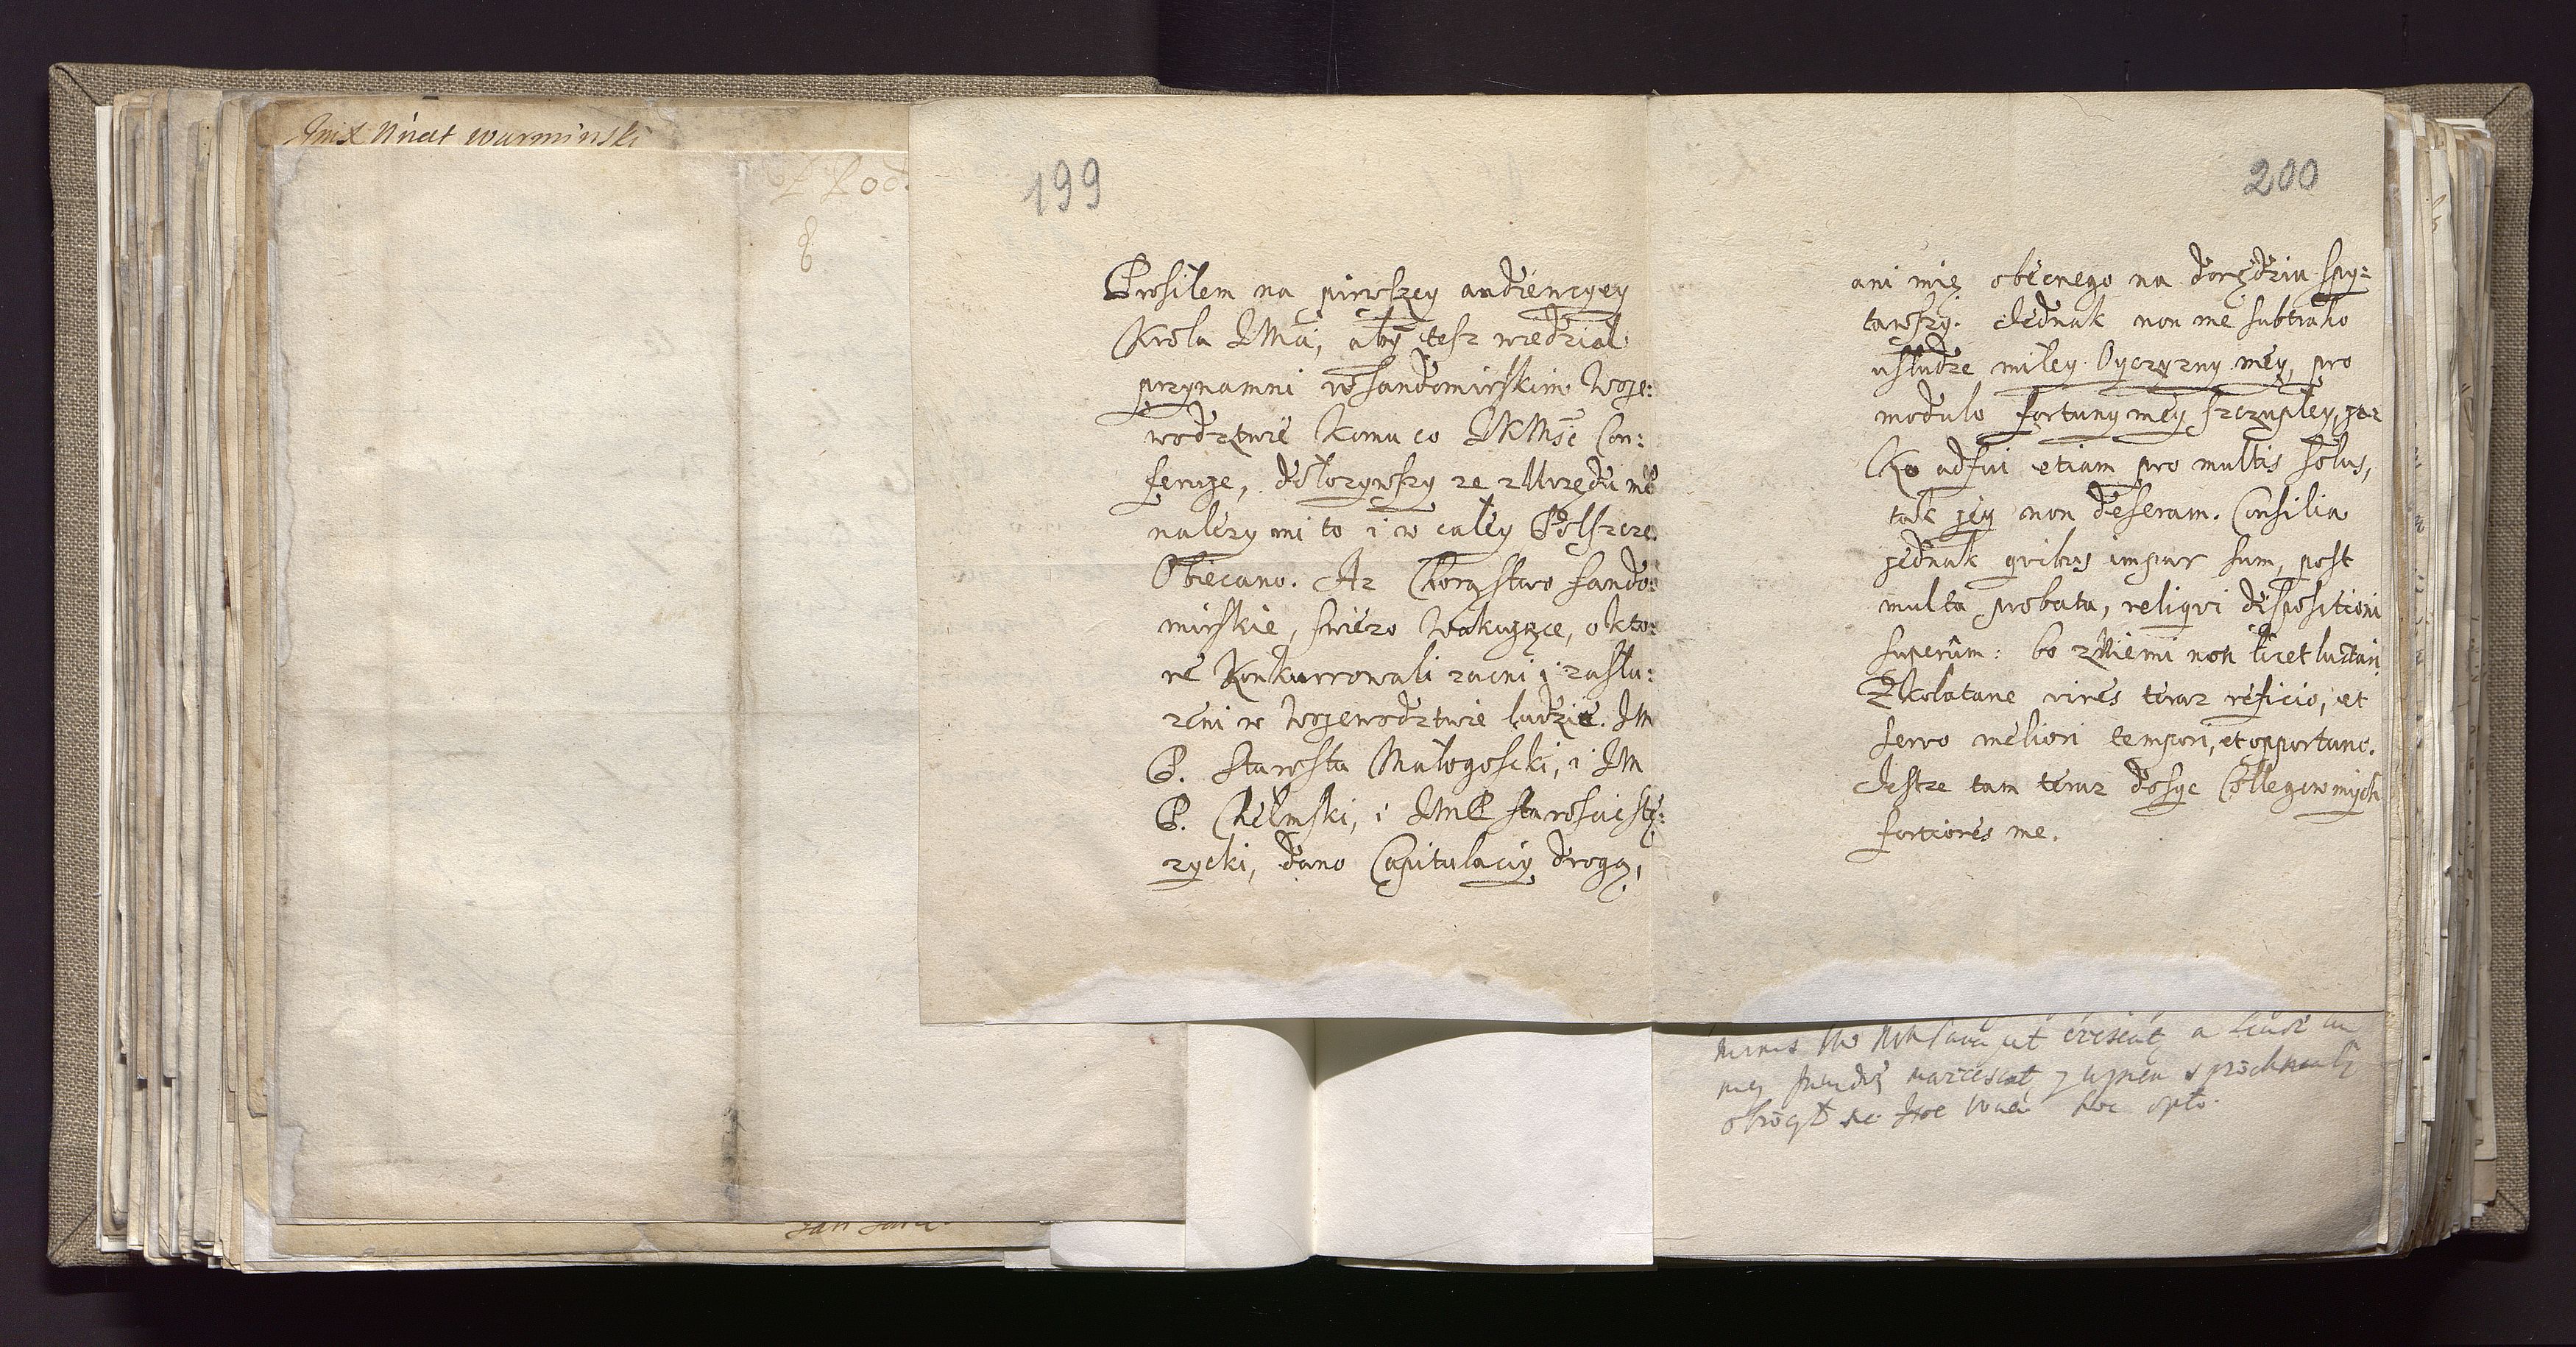 warminski
199
Prosiłem na pirwszey audiencyey
Krola JMci, aby tesz wiedział
przynamni w sandomirskim Woje:
wodztwie komu co JKMsc Con:
feruje, dołozywszy ze z Urzędu me°
nalezy mi to i w całey Polszcze.
Obiecano. Az Chorąstwo sando:
mirskie, swiezo wakujące, o kto:
re konkurrowali zacni i zasłu:
zeni w Wojewodztwie ludzie. JM
P. Starosta Małogoscki, i JM
P. Chełmski, i JMP starosvic stę:
zycki, dano Capitulacij drogą,
200
ani mię obecnego na dorędziu spy:
tawszy. Jednak non me subtraho
usłudze miłey Oyczyzny mey, pro
modulo fortuny mey szczupłey, ja:
ko adfui etiam pro multis solus,
tak jey non deseram. Consilia
jednak qvibus impar sum, post
multa probata, reliqvi dispositioni
superûm: bo z niemi non licet luctari
Zkołatane vires teraz reficio, et
servo meliori tempori, et opportuno.
Jestze tam teraz dosyc Collegow mych
fortiores me.